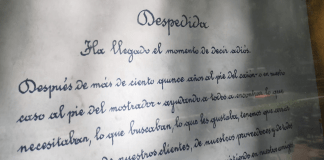 Despedida
Ha llegado el momento de decir adiós.
Después de más de ciento quince años al pie del cañón o en nuestro
caso al pie del mostrador - ayudando a todos a encontrar lo que
necesitaban, lo que buscaban, lo que les gustaba, tenemos que
de nuestros clientes, de nuestros proveedores y de